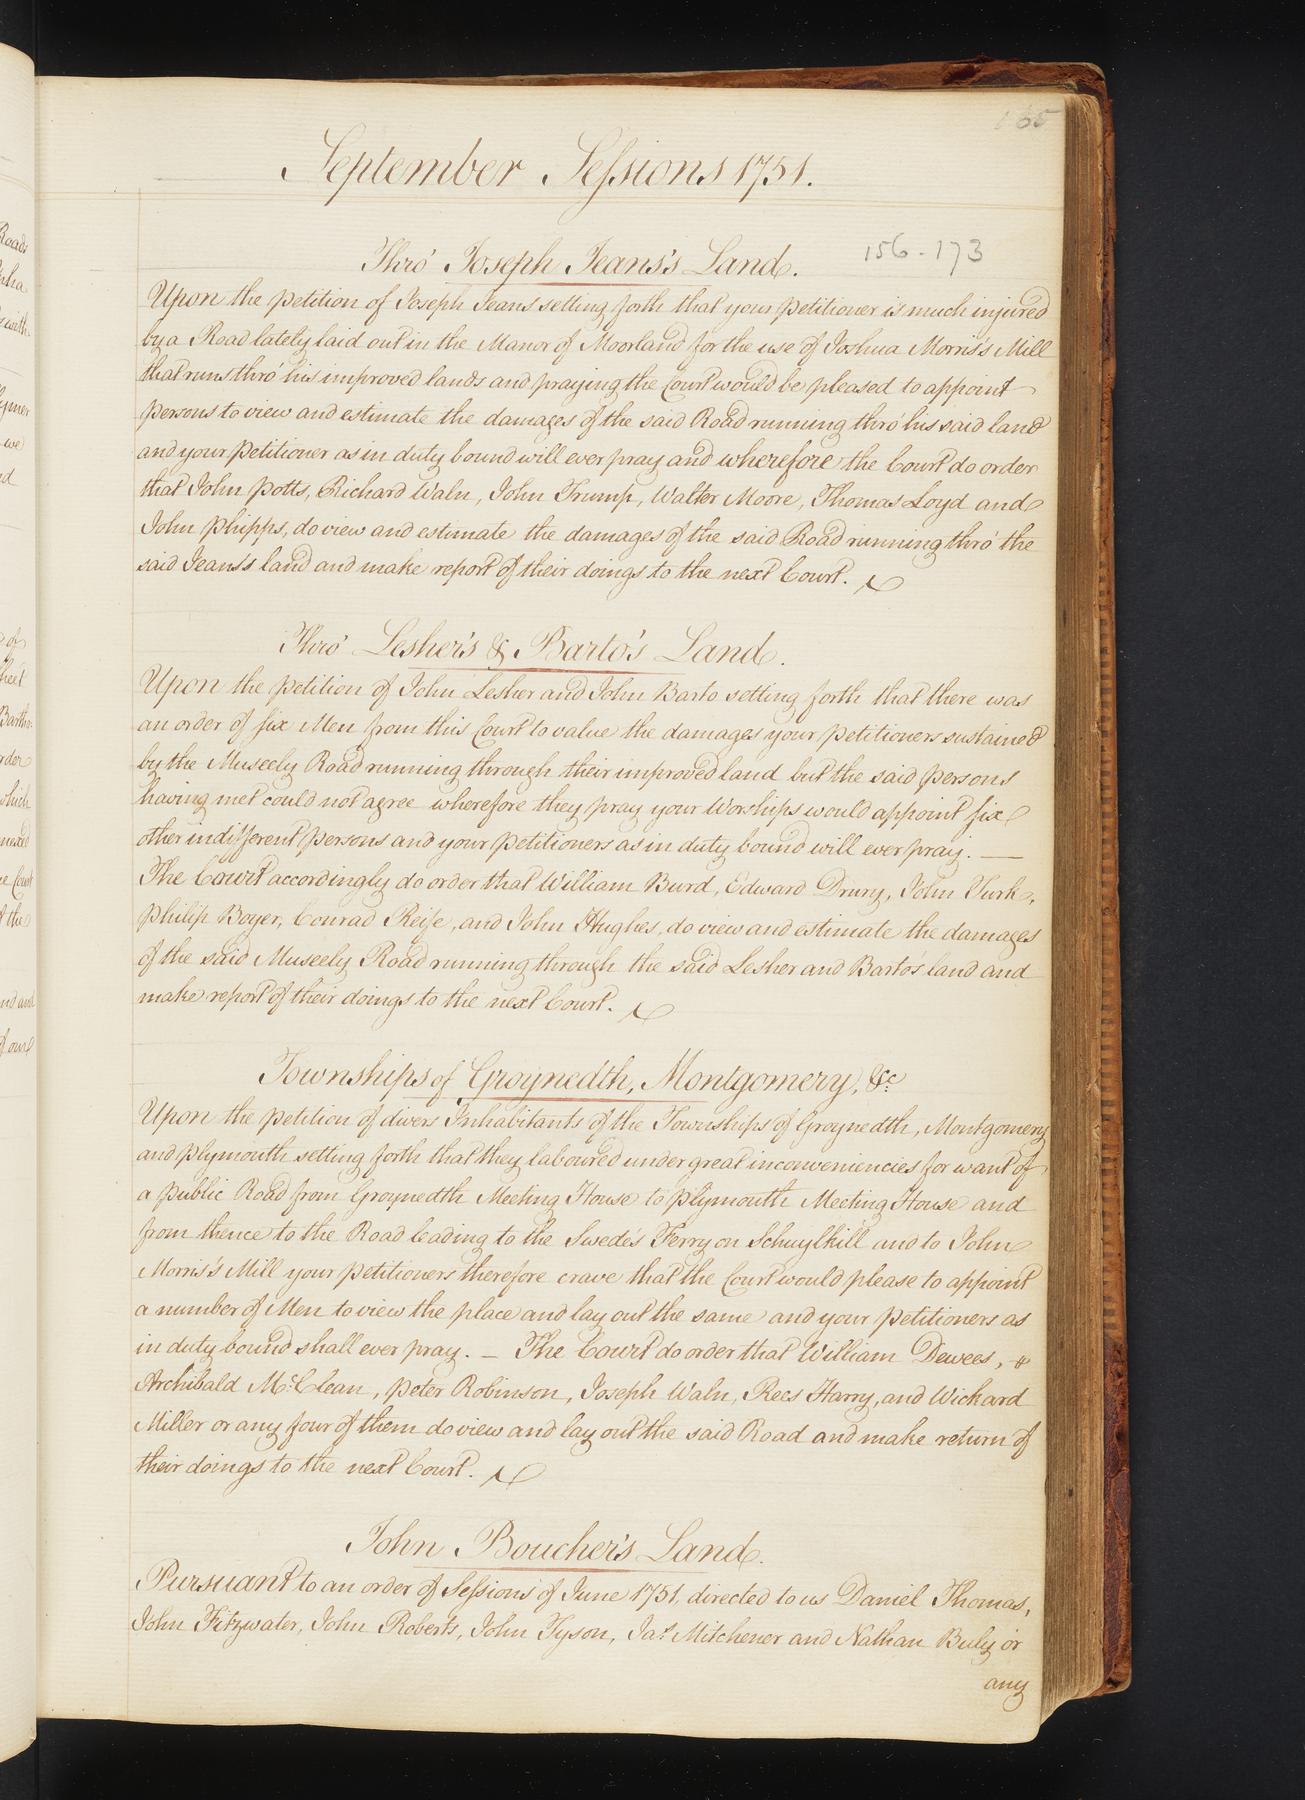 165
September Sessions 1751.
156-173
Thro' Joseph Jeans's Land.
Upon the petition of Joseph Jeans setting forth that your Petitioner is much injured
by a Road lately laid out in the Manor of Moorland for the use of Joshua Morris's Mill
that runs thro' his improved lands and praying the Court would be pleased to appoint
persons to view and estimate the damages of the said Road running thro' his said land
and your Petitioner as in duty bound will ever pray and wherefore the Court do order
that John Potts, Richard Waln, John Trump, Walter Moore, Thomas Loyd and
John Phipps, do view and estimate the damages of the said Road running thro' the
said Jeans's land and make report of their doings to the next Court.
Thro' Lesher's & Barto's Land.
Upon the petition of John Lesher and John Barto setting forth that there was
an order of six Men from this Court to value the damages your Petitioners sustained
by the Museely Road running through their improved land but the said persons
having met could not agree wherefore they pray your Worships would appoint six
other indifferent persons and your Petitioners as in duty bound will ever pray. —
The Court accordingly do order that William Burd, Edward Drury, John Turk,
Philip Boyer, Conrad Reife, and John Hughes, do view and estimate the damages
of the said Museely Road running through the said Lesher and Barto's land and
make report of their doings to the next Court.
Townships of Groynedth, Montgomery, &c.
Upon the petition of divers Inhabitants of the Townships of Groynedth, Montgomery
and Plymouth setting forth that they laboured under great inconveniencies for want of
a public Road from Groynedth Meeting House to Plymouth Meeting House and
from thence to the Road leading to the Swede's Ferry on Schuylkill and to John
Morris's Mill your Petitioners therefore crave that the Court would please to appoint
a number of Men to view the place and lay out the same and your Petitioners as
in duty bound shall ever pray. — The Court do order that William Dewees,
Archibald McClean, Peter Robinson, Joseph Waln, Rees Harry, and Wickard
Miller or any four of them do view and lay out the said Road and make return of
their doings to the next Court.
John Boucher's Land.
Pursuant to an order of Sessions of June 1751, directed to us Daniel Thomas,
John Fitzwater, John Roberts, John Tyson, Jas. Mitchener and Nathan Buly or
any